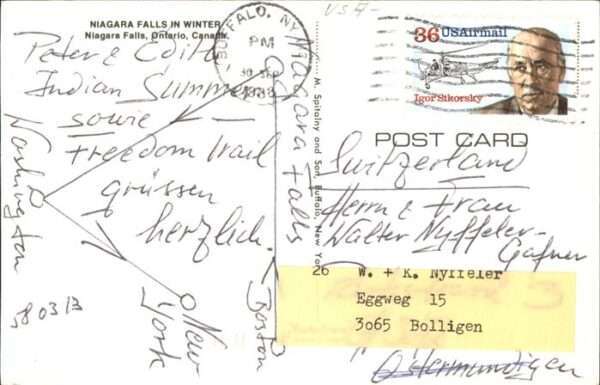 NIAGARA FALLS IN WINTER
Niagara Falls, Ontario, Canada
Peter & Edith
Indian Summer
sowie
Freedom trail
grüssen
herzlich.
Washington
New
York
Boston
Niagara Falls
58 03 13
M. Spitalny and Son, Buffalo, New York
BUFFALO, NY
PM
30 SEP
1988
USA
36 USAirmail
Igor Sikorsky
POST CARD
Switzerland
Herrn & Frau
Walter Nyffeler-
Gafner
26
W. + K. Nyffeler
Eggweg 15
3065 Bolligen
Ostermundigen